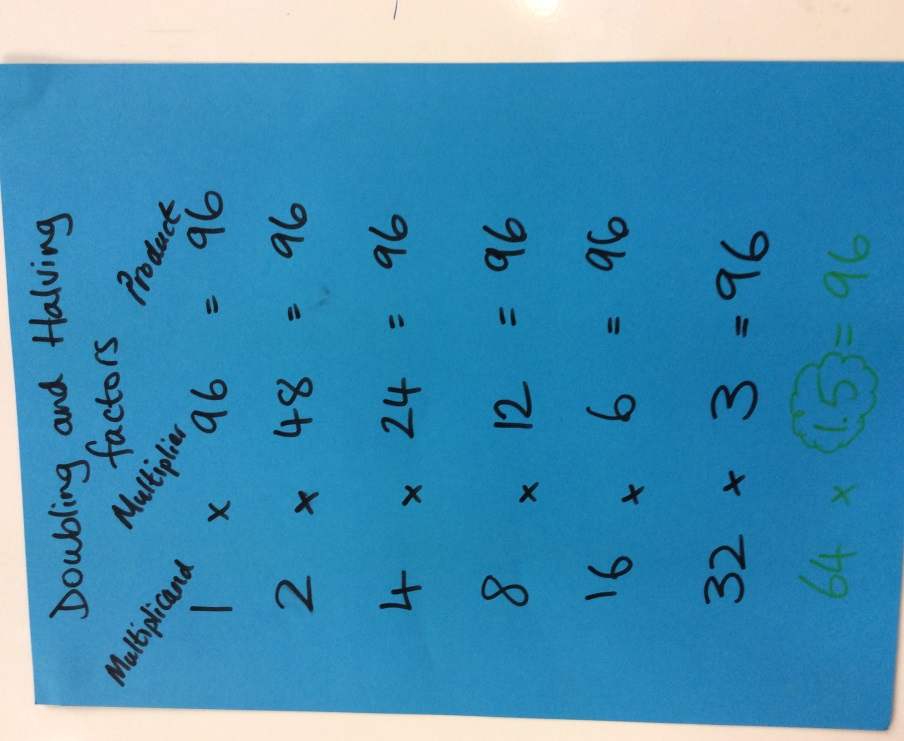 Doubling and Halving
factors
Multiplicand Multiplier Product
1 × 96 = 96
2 × 48 = 96
4 × 24 = 96
8 × 12 = 96
16 × 6 = 96
32 × 3 = 96
64 × 1.5 = 96